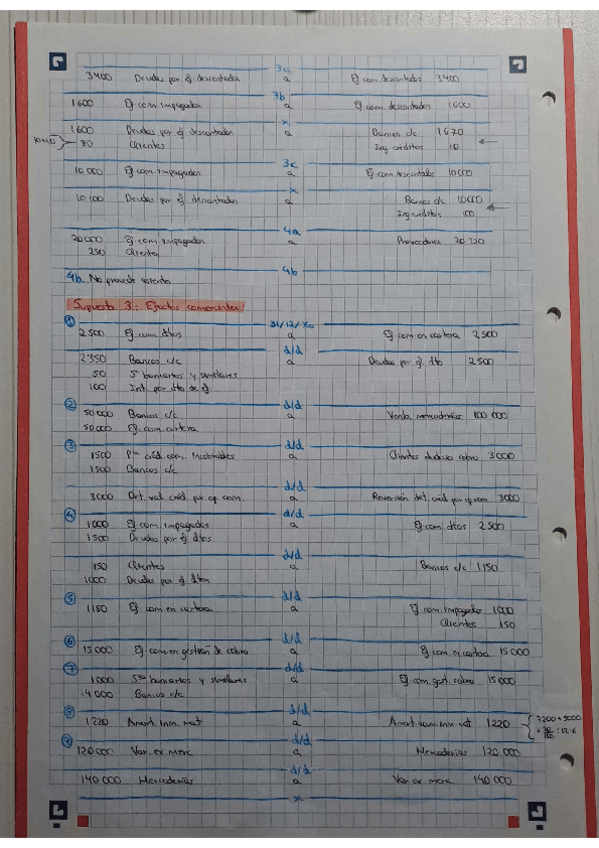 3a
3400 Deudas por ef descontados a Ef com. descontados 3400
3b
1600 Ef com. impagados a Ef com. descontados 1600
x
1600 Deudas por ef descontados a Bancos c/c 1670
80 Clientes Ing créditos 10
3c
10 000 Ef com. impagados a Ef com. descontados 10000
x
10 100 Deudas por ef descontados a Bancos c/c 10000
Ing créditos 100
4a
20 000 Ef com. impagados a Proveedores 20 250
250 Clientes
4b. No procede asiento 4b
Supuesto 3: Efectos comerciales
1 31/12/X0
2 500 Ef com. dtos a Ef com en cartera 2 500
d/d
2 350 Bancos c/c a Deudas por ef dto 2 500
50 Sº bancarios y similares
100 Int. por dto de ef
2 d/d
50 000 Bancos c/c a Venta mercaderías 100 000
50 000 Ef com. cartera
3 d/d
1500 Pªs créd. com. Incobrables a Clientes dudoso cobro 3 000
1500 Bancos c/c
d/d
3000 Det. val. créd por op com. a Reversión det. créd por op com 3000
4 d/d
1000 Ef com. impagados a Ef com. dtos 2 500
1500 Deudas por ef dtos
d/d
150 Clientes a Bancos c/c 1 150
1000 Deudas por ef dtos
5 d/d
1 150 Ef com en cartera a Ef com. impagados 1 000
Clientes 150
6 d/d
15 000 Ef com en gestión de cobro a Ef com. en cartera 15 000
7 d/d
1000 Sºs bancarios y similares a Ef com gest. cobro 15 000
14 000 Bancos c/c
8 d/d
1 220 Amort. inm. mat a Amort. acum. inm mat 1 220
9 d/d
120 000 Var. ex merc. a Mercaderías 120 000
d/d
140 000 Mercaderías a Var ex merc. 140 000
x